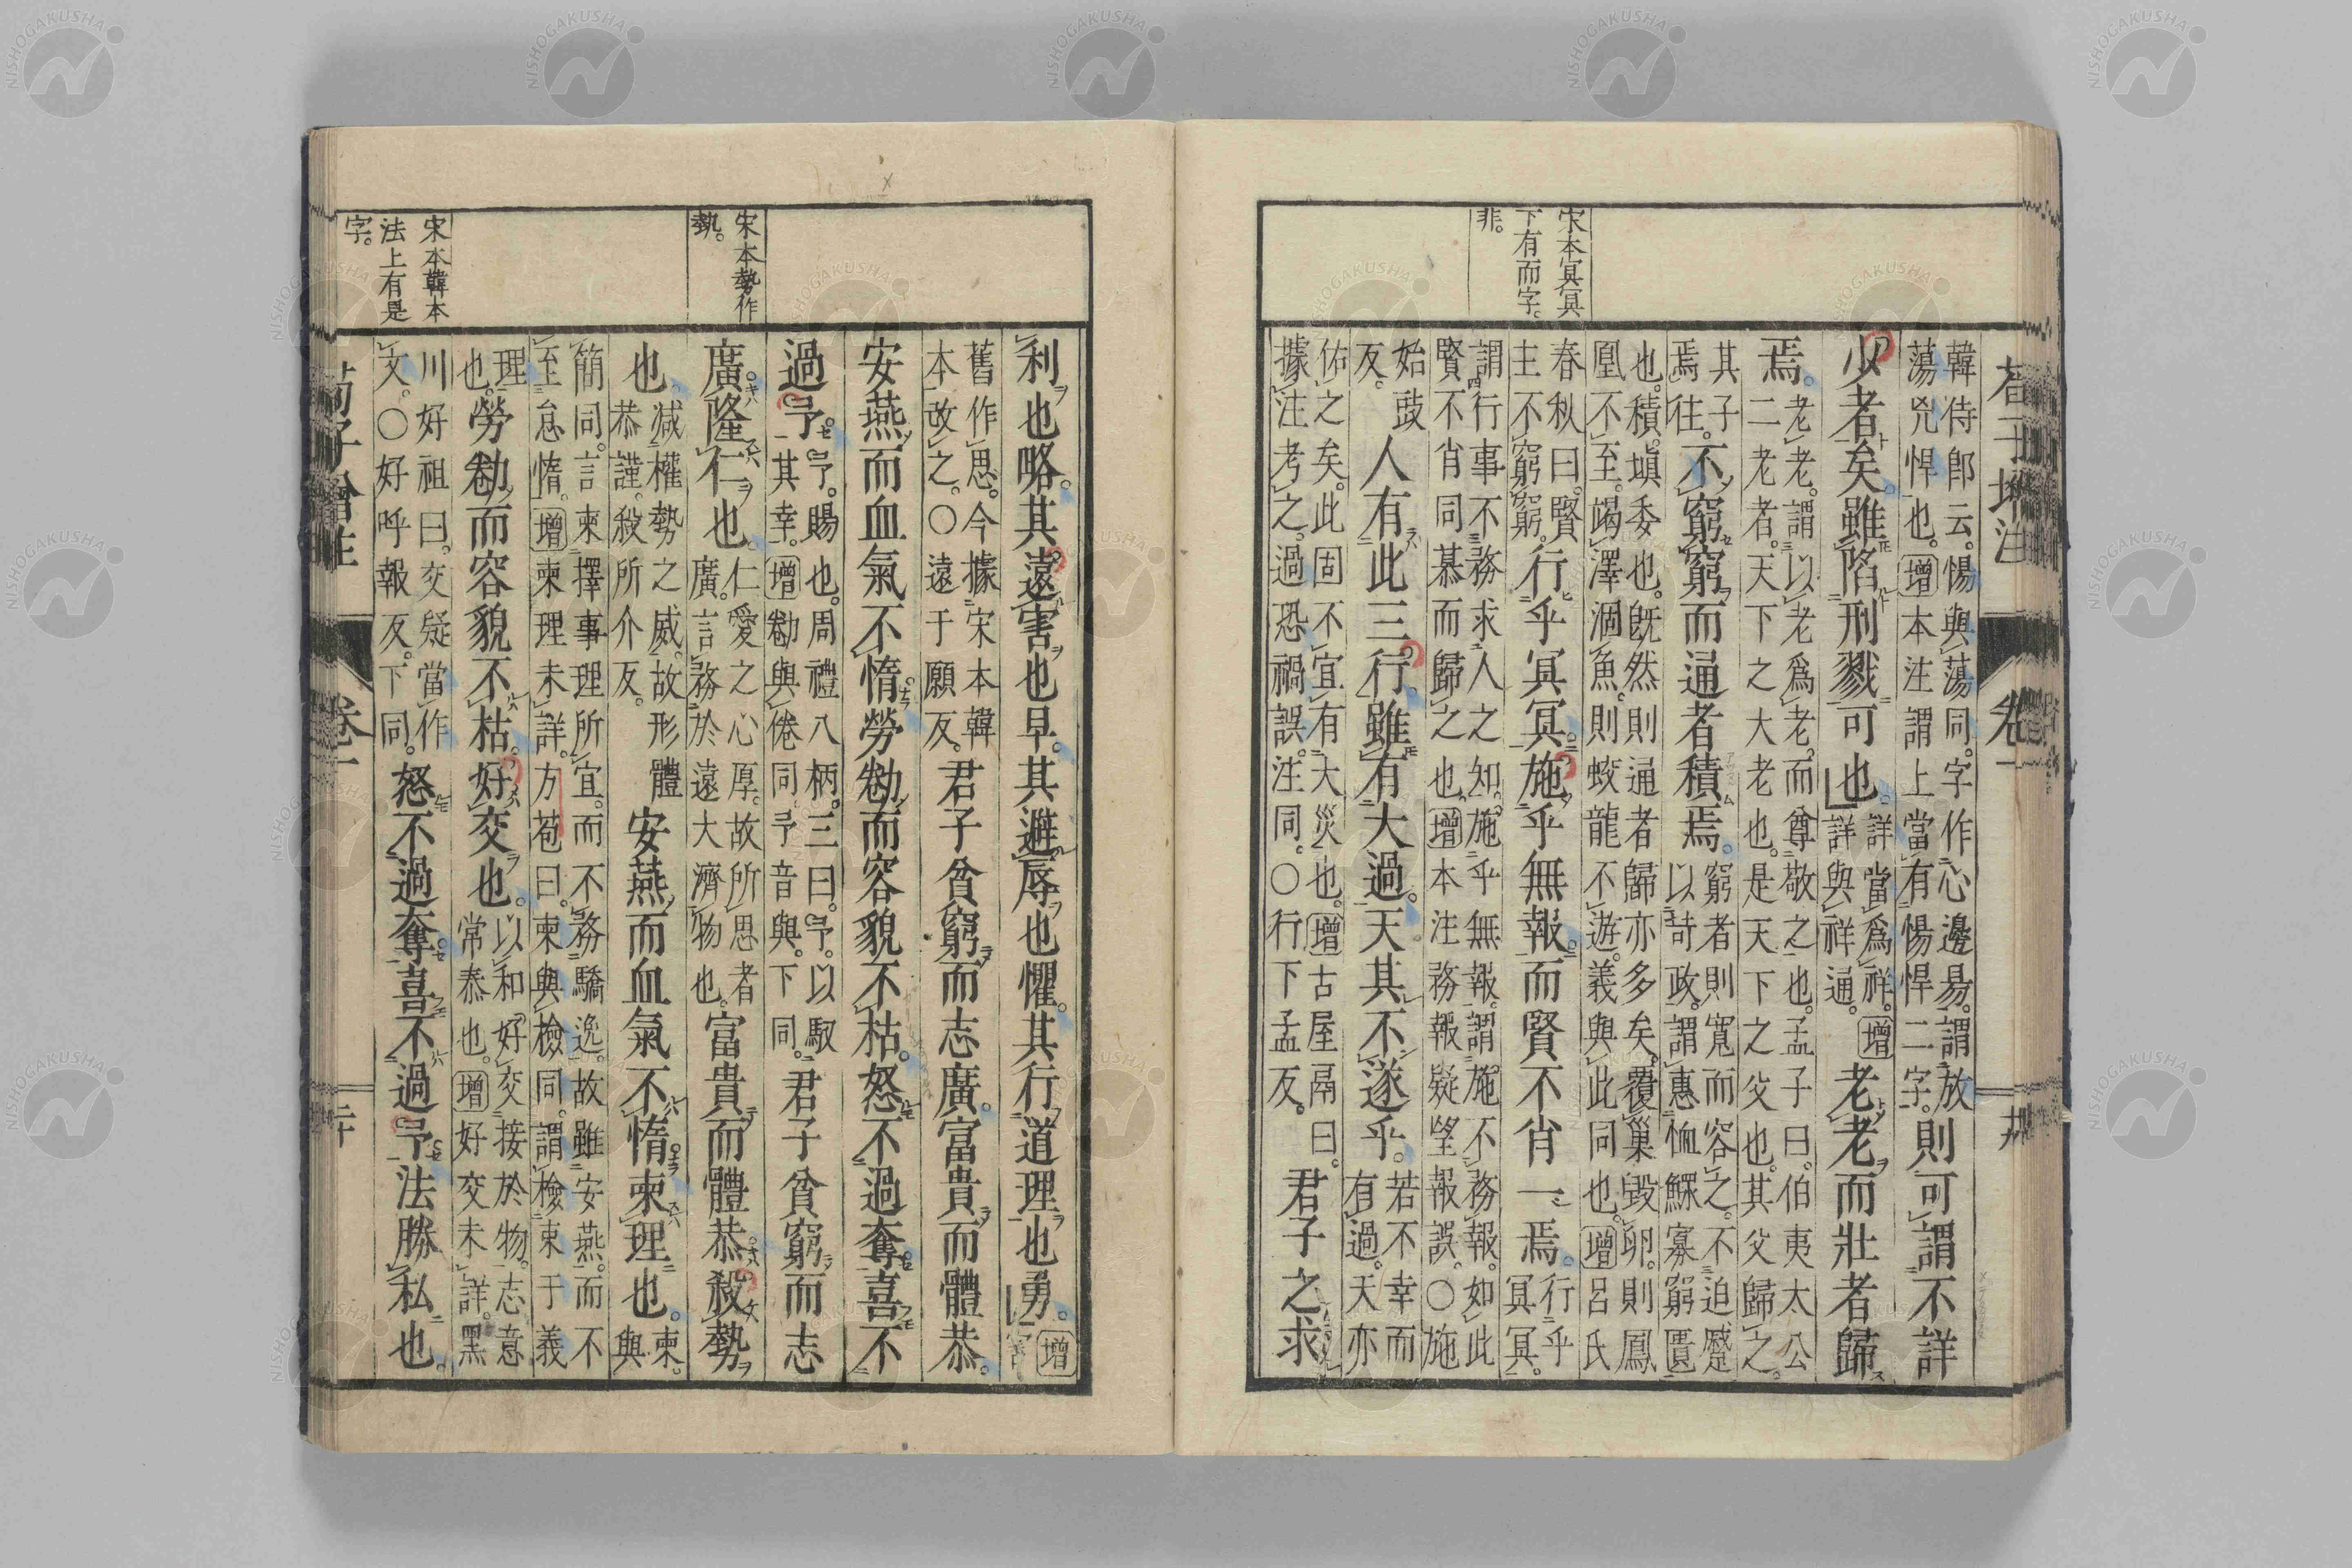 荀子增注
卷一
宋本冥冥
下有而字。
非。
韓侍郎云。愓與蕩同。字作心邊易。謂放
蕩兇悍也。增本注謂上當有愓悍二字。
則可謂不詳
少者矣。雖陷刑戮可也。
詳當爲祥。增
詳與祥通。
老老而壯者歸
焉。
老老。謂以老爲老。而尊敬之也。孟子曰。伯夷太公
二老者。天下之大老也。是天下之父也。其父歸之。
其子
焉往。
不窮窮而通者積焉。
窮者則寬而容之。不迫蹙
以苛政。謂惠恤鰥寡窮匱
也。積塡委也。旣然則通者歸亦多矣。覆巢毀卵。則鳳
凰不至。竭澤涸魚。則蛟龍不遊。義與此同也。增呂氏
春秋曰。賢
主不窮窮。
行乎冥冥。施乎無報。而賢不肖一焉。
行乎
冥冥。
謂行事不務求人之知。施乎無報。謂施不務報。如此
賢不肖同慕而歸之也。增本注務報疑望報誤。○施
始豉
反。
人有此三行。雖有大過。天其不遂乎。
若不幸而
有過。天亦
佑之矣。此固不宜有大災也。增古屋鬲曰。
據注考之。過恐禍誤。注同。○行下孟反。
君子之求
宋本勢作
埶。
宋本韓本
法上有是
字。
利也略。其遠害也早。其避辱也懼。其行道理也勇。
增
舊作思。今據宋本韓
本改之。○遠于願反。
君子貧窮而志廣。富貴而體恭。
安燕而血氣不惰。勞勌而容貌不枯。怒不過奪。喜不
過予。
予。賜也。周禮八柄。三曰。予。以馭
其幸。增勌與倦同。予音與。下同。
君子貧窮而志
廣。隆仁也。
仁愛之心厚。故所思者
廣。言務於遠大濟物也。
富貴而體恭。殺勢
也。
減權勢之威。故形體
恭謹。殺所介反。
安燕而血氣不惰。柬理也。
柬。
與
簡同。言柬擇事理所宜。而不務驕逸。故雖安燕。而不
至怠惰。增柬理未詳。方苞曰。柬與檢同。謂檢束于義
理
也。
勞勌而容貌不枯。好交也。
以和好交接於物。志意
常泰也。增好交未詳。黑
川好祖曰。交疑當作
文。○好呼報反。下同。
怒不過奪。喜不過予。法勝私也。
荀子增注
卷一
二十